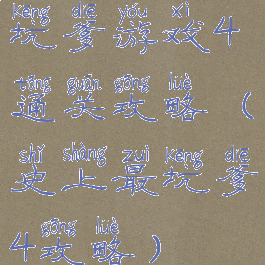 kēng diē yóu xì
坑爹游戏4
tōng guān gōng lüè
通关攻略(
shǐ shàng zuì kēng diē
史上最坑爹
gōng lüè
4攻略)